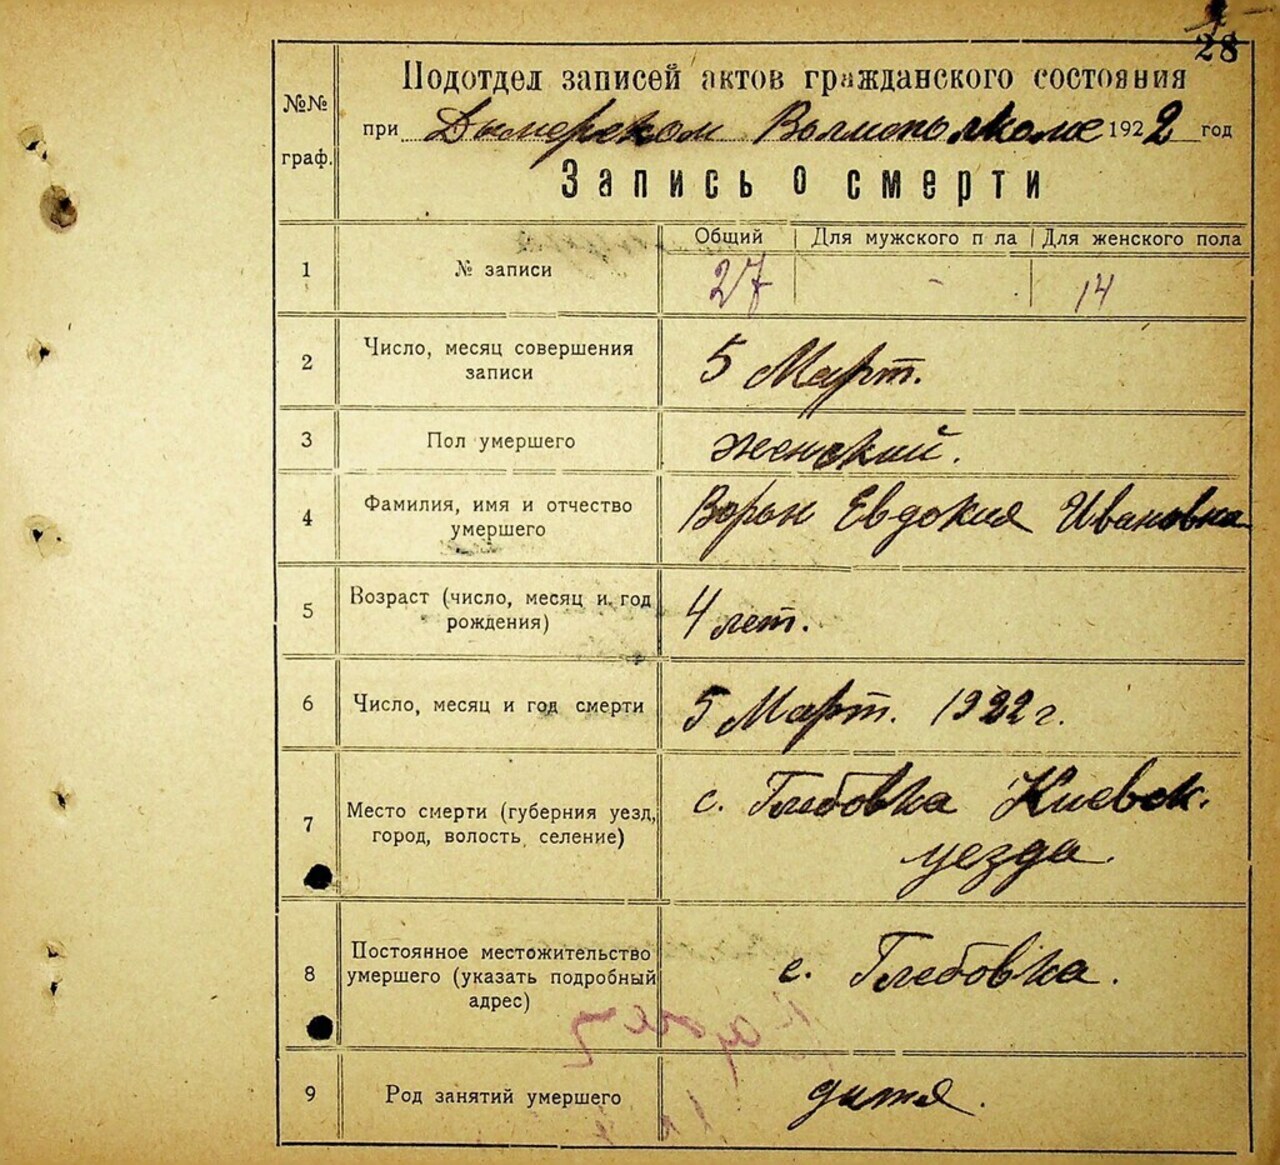 28
№№ граф.
Подотдел записей актов гражданского состояния
при Дымерском Волисполкоме 1922 год
Запись о смерти
Общий Для мужского п ла Для женского пола
1 № записи 27 - 14
2 Число, месяц совершения
записи
5 Март.
3 Пол умершего женский.
4 Фамилия, имя и отчество
умершего
Ворон Евдокия Ивановна
5 Возраст (число, месяц и год
рождения)
4 лет.
6 Число, месяц и год смерти 5 Март. 1922 г.
7 Место смерти (губерния уезд,
город, волость, селение)
с. Глебовка Киевск.
уезда.
8 Постоянное местожительство
умершего (указать подробный
адрес)
с. Глебовка.
9 Род занятий умершего дитя.